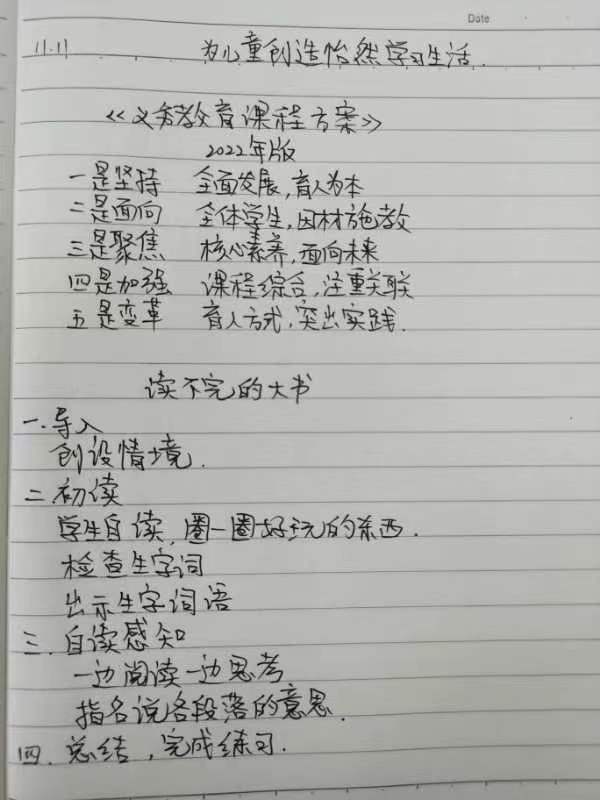 Date
11.11 为儿童创造怡然学习生活.
《义务教育课程方案》
2022年版
一是坚持 全面发展,育人为本
二是面向 全体学生,因材施教
三是聚焦 核心素养,面向未来
四是加强 课程综合,注重关联
五是变革 育人方式,突出实践.
读不完的大书
一.导入
创设情境.
二.初读
学生自读,圈一圈好玩的东西.
检查生字词
出示生字词语
三.自读感知
一边阅读一边思考
指名说各段落的意思.
四.总结,完成练习.